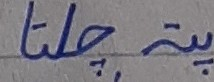 پتہ چلتا